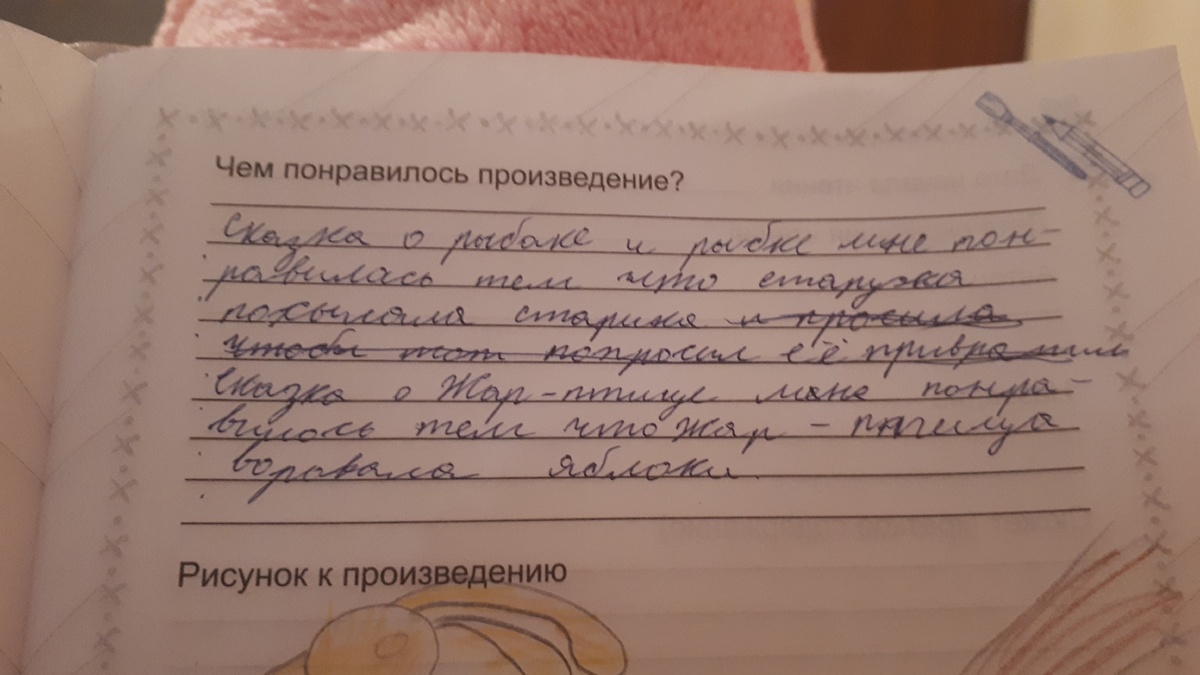 Чем понравилось произведение?
Сказка о рыбаке и рыбке мне пон-
равилась тем что старуха
посылала старика и просила
чтобы тот попросил её
Сказка о Жар-птице мне понра-
вилось тем что Жар-птица
воровала яблоки.
Рисунок к произведению